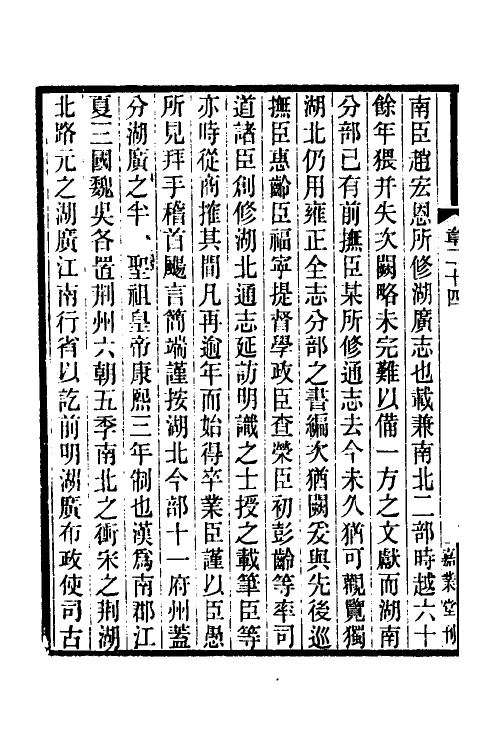 章二十四
嘉業堂刊
南臣趙宏恩所修湖廣志也載兼南北二部時越六十
餘年猥并失次闕略未完難以備一方之文獻而湖南
分部已有前撫臣某所修通志去今未久猶可觀覽獨
湖北仍用雍正全志分部之書編次猶闕爰與先後巡
撫臣惠齡臣福寧提督學政臣查瑩臣初彭齡等率司
道諸臣創修湖北通志延訪明識之士授之載筆臣等
亦時從商搉其間凡再逾年而始得卒業臣謹以臣愚
所見拜手稽首颺言簡端謹按湖北今部十一府州蓋
分湖廣之半聖祖皇帝康熙三年制也漢爲南郡江
夏三國魏吳各置荆州六朝五季南北之衝宋之荆湖
北路元之湖廣江南行省以訖前明湖廣布政使司古